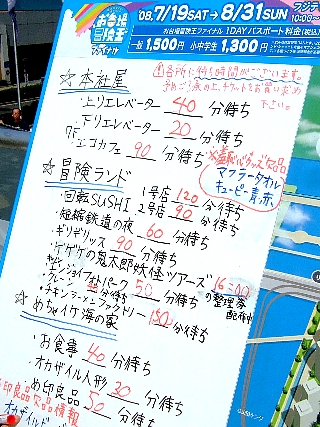 お台場
冒険王
ファイナル
08.7/19SAT→8/31SUN
フジテ
10:00〜
お台場冒険王ファイナル 1DAYパスポート料金(税込)
一般1,500円 小中学生1,300円
各所に待ち時間がございます。
予めご了承の上、チケットをお買い求め
下さい。
☆本社屋
・上りエレベーター 40 分待ち
・下りエレベーター 20 分待ち
・7F エコカフェ 90 分待ち
欠品
マフラータオル
キューピー青、赤
☆冒険ランド
・回転SUSHI 1号店 120 分待ち
2号店 90 分待ち
・短縮鉄道の夜 60 分待ち
・ギリギリッス 90 分待ち
・ゲゲゲの鬼太郎妖怪ツアーズ 16:00
の整理券
配布中
50 分待ち
・チキンラーメンファクトリー 180 分待ち
☆めちゃイケ海の家
・お食事 40 分待ち
・オカザイル人形 20 分待ち
・め印良品 50 分待ち
め印良品欠品情報
オカザイル